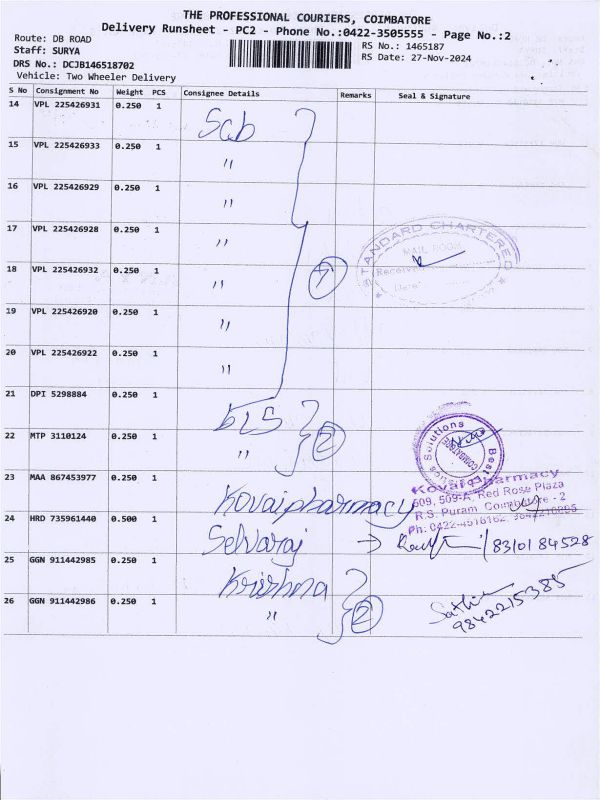 THE PROFESSIONAL COURIERS, COIMBATORE
Delivery Runsheet - PC2 - Phone No.:0422-3505555 - Page No.:2
Route: DB ROAD
Staff: SURYA
RS No.: 1465187
RS Date: 27-Nov-2024
DRS No.: DCJB146518702
Vehicle: Two Wheeler Delivery
S No Consignment No Weight PCS Consignee Details Remarks Seal & Signature
14 VPL 225426931 0.250 1 Scb
15 VPL 225426933 0.250 1 "
16 VPL 225426929 0.250 1 "
17 VPL 225426928 0.250 1 "
STANDARD CHARTERED
MAIL ROOM
Received
Date
18 VPL 225426932 0.250 1 " 7
19 VPL 225426920 0.250 1 "
20 VPL 225426922 0.250 1 "
21 DPI 5298884 0.250 1
22 MTP 3110124 0.250 1 " 2
Solutions
COIMBATORE
Best
23 MAA 867453977 0.250 1 Kovaipharmacy
Kovai Pharmacy
509, 509-A, Red Rose Plaza
R.S. Puram, Coimbatore - 2
24 HRD 735961440 0.500 1 Selvaraj → 8310184528
25 GGN 911442985 0.250 1 Krishna
26 GGN 911442986 0.250 1 " 2
9842215385